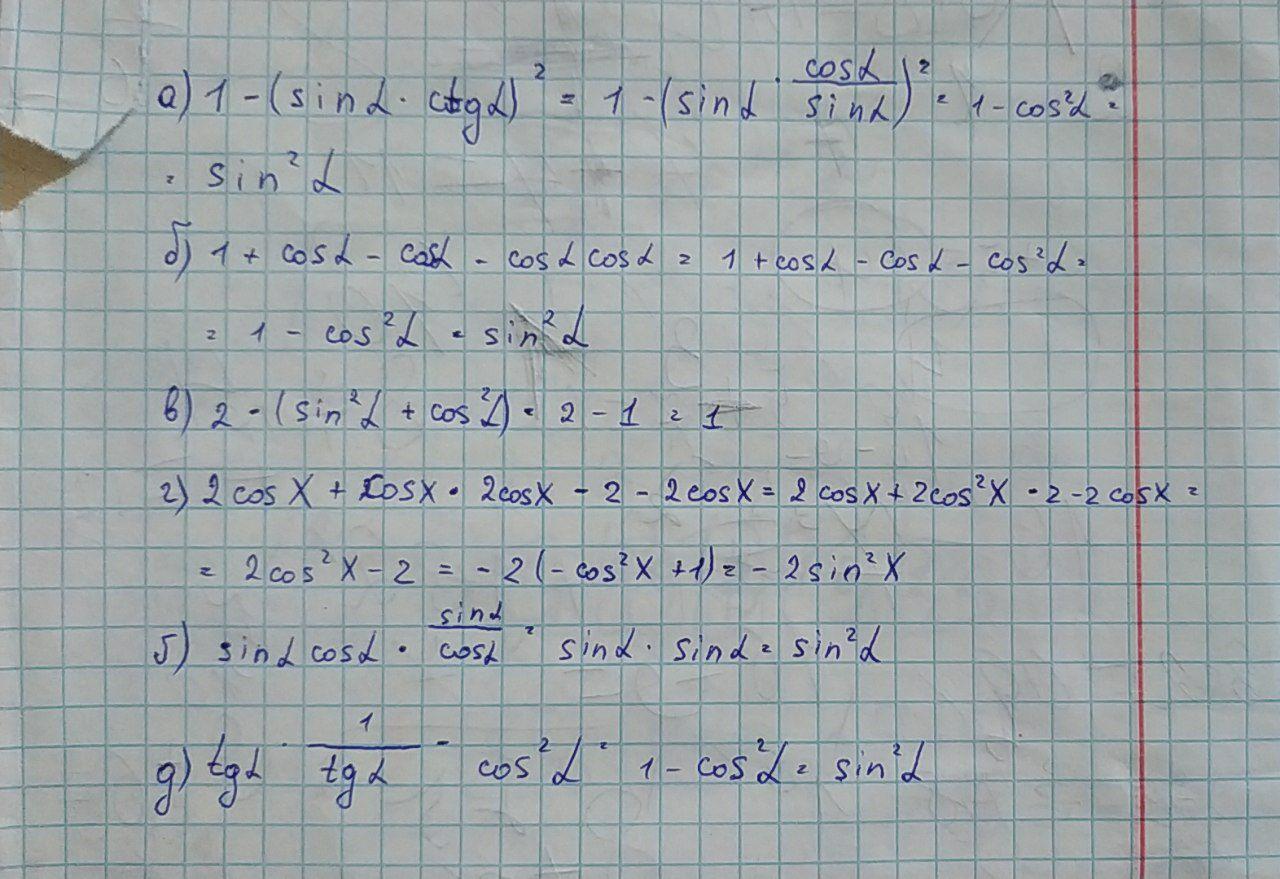 а) 1 - (sin α · ctg α)² = 1 - (sin α · cos α / sin α)² = 1 - cos²α =
= sin²α
б) 1 + cos α - cos α - cos α cos α = 1 + cos α - cos α - cos²α =
= 1 - cos²α = sin²α
в) 2 - (sin²α + cos²α) = 2 - 1 = 1
г) 2 cos x + cos x · 2cos x - 2 - 2cos x = 2 cos x + 2cos²x - 2 - 2 cos x =
= 2cos²x - 2 = - 2 (- cos²x + 1) = - 2 sin²x
б) sin α cos α · sin α / cos α = sin α · sin α = sin²α
д) tg α · 1 / tg α - cos²α = 1 - cos²α = sin²α